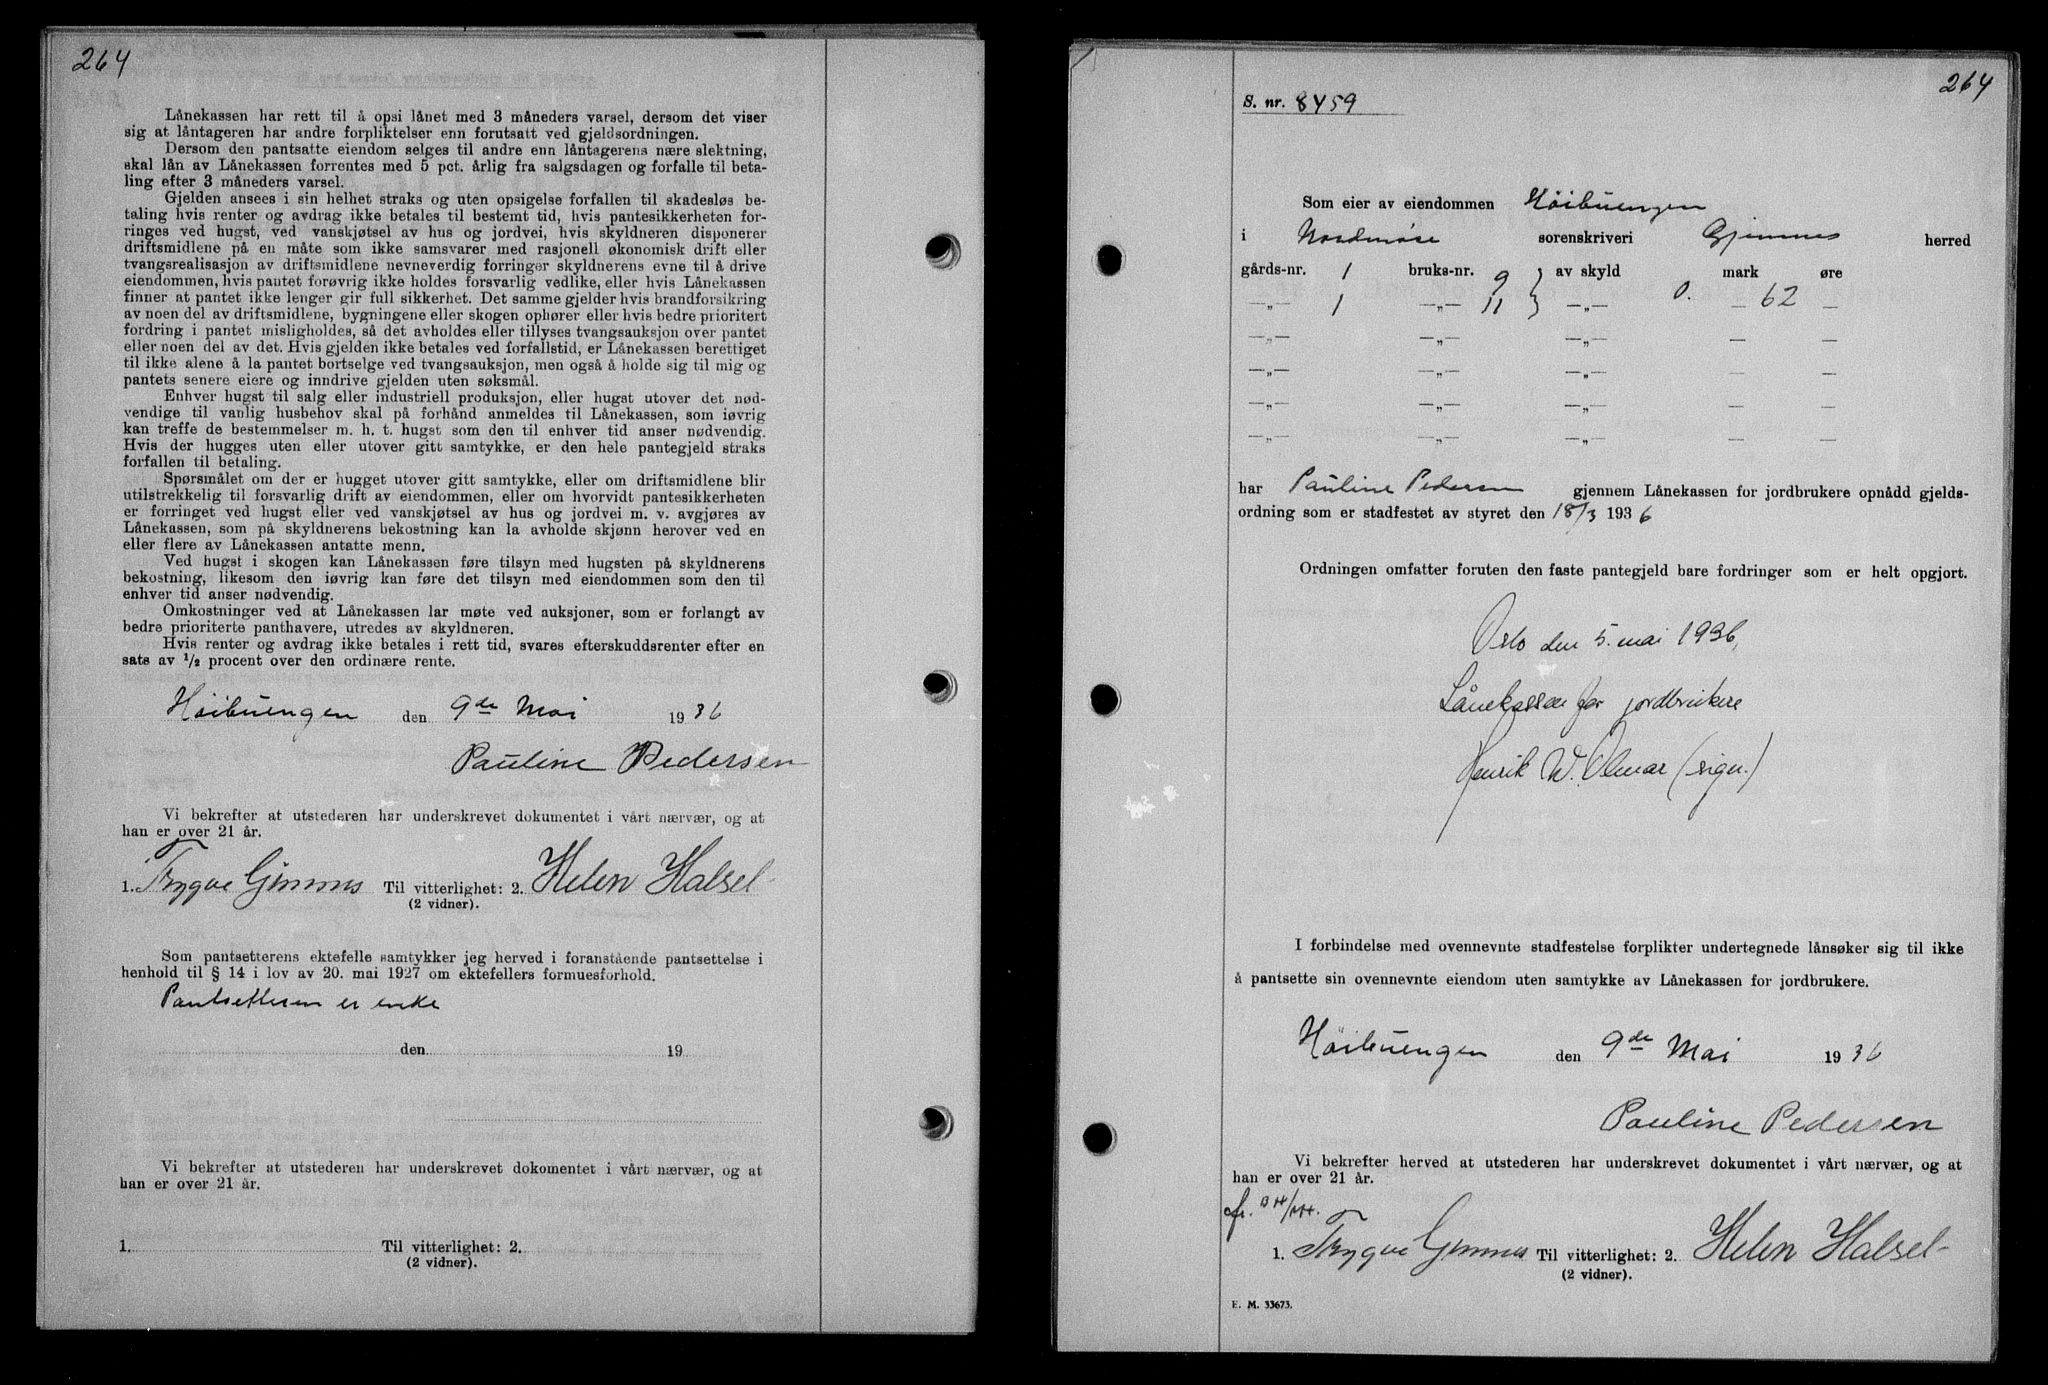 264
Lånekassen har rett til å opsi lånet med 3 måneders varsel, dersom det viser
sig at låntageren har andre forpliktelser enn forutsatt ved gjeldsordningen.
Dersom den pantsatte eiendom selges til andre enn låntagerens nære slektning,
skal lån av Lånekassen forrentes med 5 pct. årlig fra salgsdagen og forfalle til beta-
ling efter 3 måneders varsel.
Gjelden ansees i sin helhet straks og uten opsigelse forfallen til skadesløs be-
taling hvis renter og avdrag ikke betales til bestemt tid, hvis pantesikkerheten for-
ringes ved hugst, ved vanskjøtsel av hus og jordvei, hvis skyldneren disponerer
driftsmidlene på en måte som ikke samsvarer med rasjonell økonomisk drift eller
tvangsrealisasjon av driftsmidlene nevneverdig forringer skyldnerens evne til å drive
eiendommen, hvis pantet forøvrig ikke holdes forsvarlig vedlike, eller hvis Lånekassen
finner at pantet ikke lenger gir full sikkerhet. Det samme gjelder hvis brandforsikring
av noen del av driftsmidlene, bygningene eller skogen ophører eller hvis bedre prioritert
fordring i pantet misligholdes, så det avholdes eller tillyses tvangsauksjon over pantet
eller noen del av det. Hvis gjelden ikke betales ved forfallstid, er Lånekassen berettiget
til ikke alene å la pantet bortselge ved tvangsauksjon, men også å holde sig til mig og
pantets senere eiere og inndrive gjelden uten søksmål.
Enhver hugst til salg eller industriell produksjon, eller hugst utover det nød-
vendige til vanlig husbehov skal på forhånd anmeldes til Lånekassen, som iøvrig
kan treffe de bestemmelser m. h. t. hugst som den til enhver tid anser nødvendig.
Hvis der hugges uten eller utover gitt samtykke, er den hele pantegjeld straks
forfallen til betaling.
Spørsmålet om der er hugget utover gitt samtykke, eller om driftsmidlene blir
utilstrekkelig til forsvarlig drift av eiendommen, eller om hvorvidt pantesikkerheten
er forringet ved hugst eller ved vanskjøtsel av hus og jordvei m. v. avgjøres av
Lånekassen, som på skyldnerens bekostning kan la avholde skjønn herover ved en
eller flere av Lånekassen antatte menn.
Ved hugst i skogen kan Lånekassen føre tilsyn med hugsten på skyldnerens
bekostning, likesom den iøvrig kan føre det tilsyn med eiendommen som den til
enhver tid anser nødvendig.
Omkostninger ved at Lånekassen lar møte ved auksjoner, som er forlangt av
bedre prioriterte panthavere, utredes av skyldneren.
Hvis renter og avdrag ikke betales i rett tid, svares efterskuddsrenter efter en
sats av 1/2 procent over den ordinære rente.
Höibuengen den 9de Mai 1936
Pauline Pedersen
Vi bekrefter at utstederen har underskrevet dokumentet i vårt nærvær, og at
han er over 21 år.
1. Trygve Gimnes Til vitterlighet: 2. Helen Halsel
(2 vidner).
Som pantsetterens ektefelle samtykker jeg herved i foranstående pantsettelse i
henhold til § 14 i lov av 20. mai 1927 om ektefellers formuesforhold.
Pantsetteren er enke
den 19
Vi bekrefter at utstederen har underskrevet dokomentet i vårt nærvær, og at
han er over 21 år.
1. Til vitterlighet: 2.
(2 vidner).
264
S. nr. 8459
Som eier av eiendommen Höibuengen
i Nordmøre sorenskriveri Gjemnes herred
gårds-nr. 1 bruks-nr. 9 } av skyld mark øre
—„— 1 —„— 11 } —„— 0. — 62 —
—„— —„— —„— — —
—„— —„— —„— — —
—„— —„— —„— — —
—„— —„— —„— — —
har Pauline Pedersen gjennem Lånekassen for jordbrukere opnådd gjelds-
ordning som er stadfestet av styret den 18/3 1936
Ordningen omfatter foruten den faste pantegjeld bare fordringer som er helt opgjort.
Oslo den 5. mai 1936,
Lånekassen for jordbrukere
Henrik W. Olmar (sign.)
I forbindelse med ovennevnte stadfestelse forplikter undertegnede lånsøker sig til ikke
å pantsette sin ovennevnte eiendom uten samtykke av Lånekassen for jordbrukere.
Höibuengen den 9de Mai 1936
Pauline Pedersen
Vi bekrefter herved at utstederen har underskrevet dokumentet i vårt nærvær, og at
han er over 21 år.
1. Trygve Gimnes Til vitterlighet: 2. Helen Halsel
(2 vidner).
E. M. 33673.